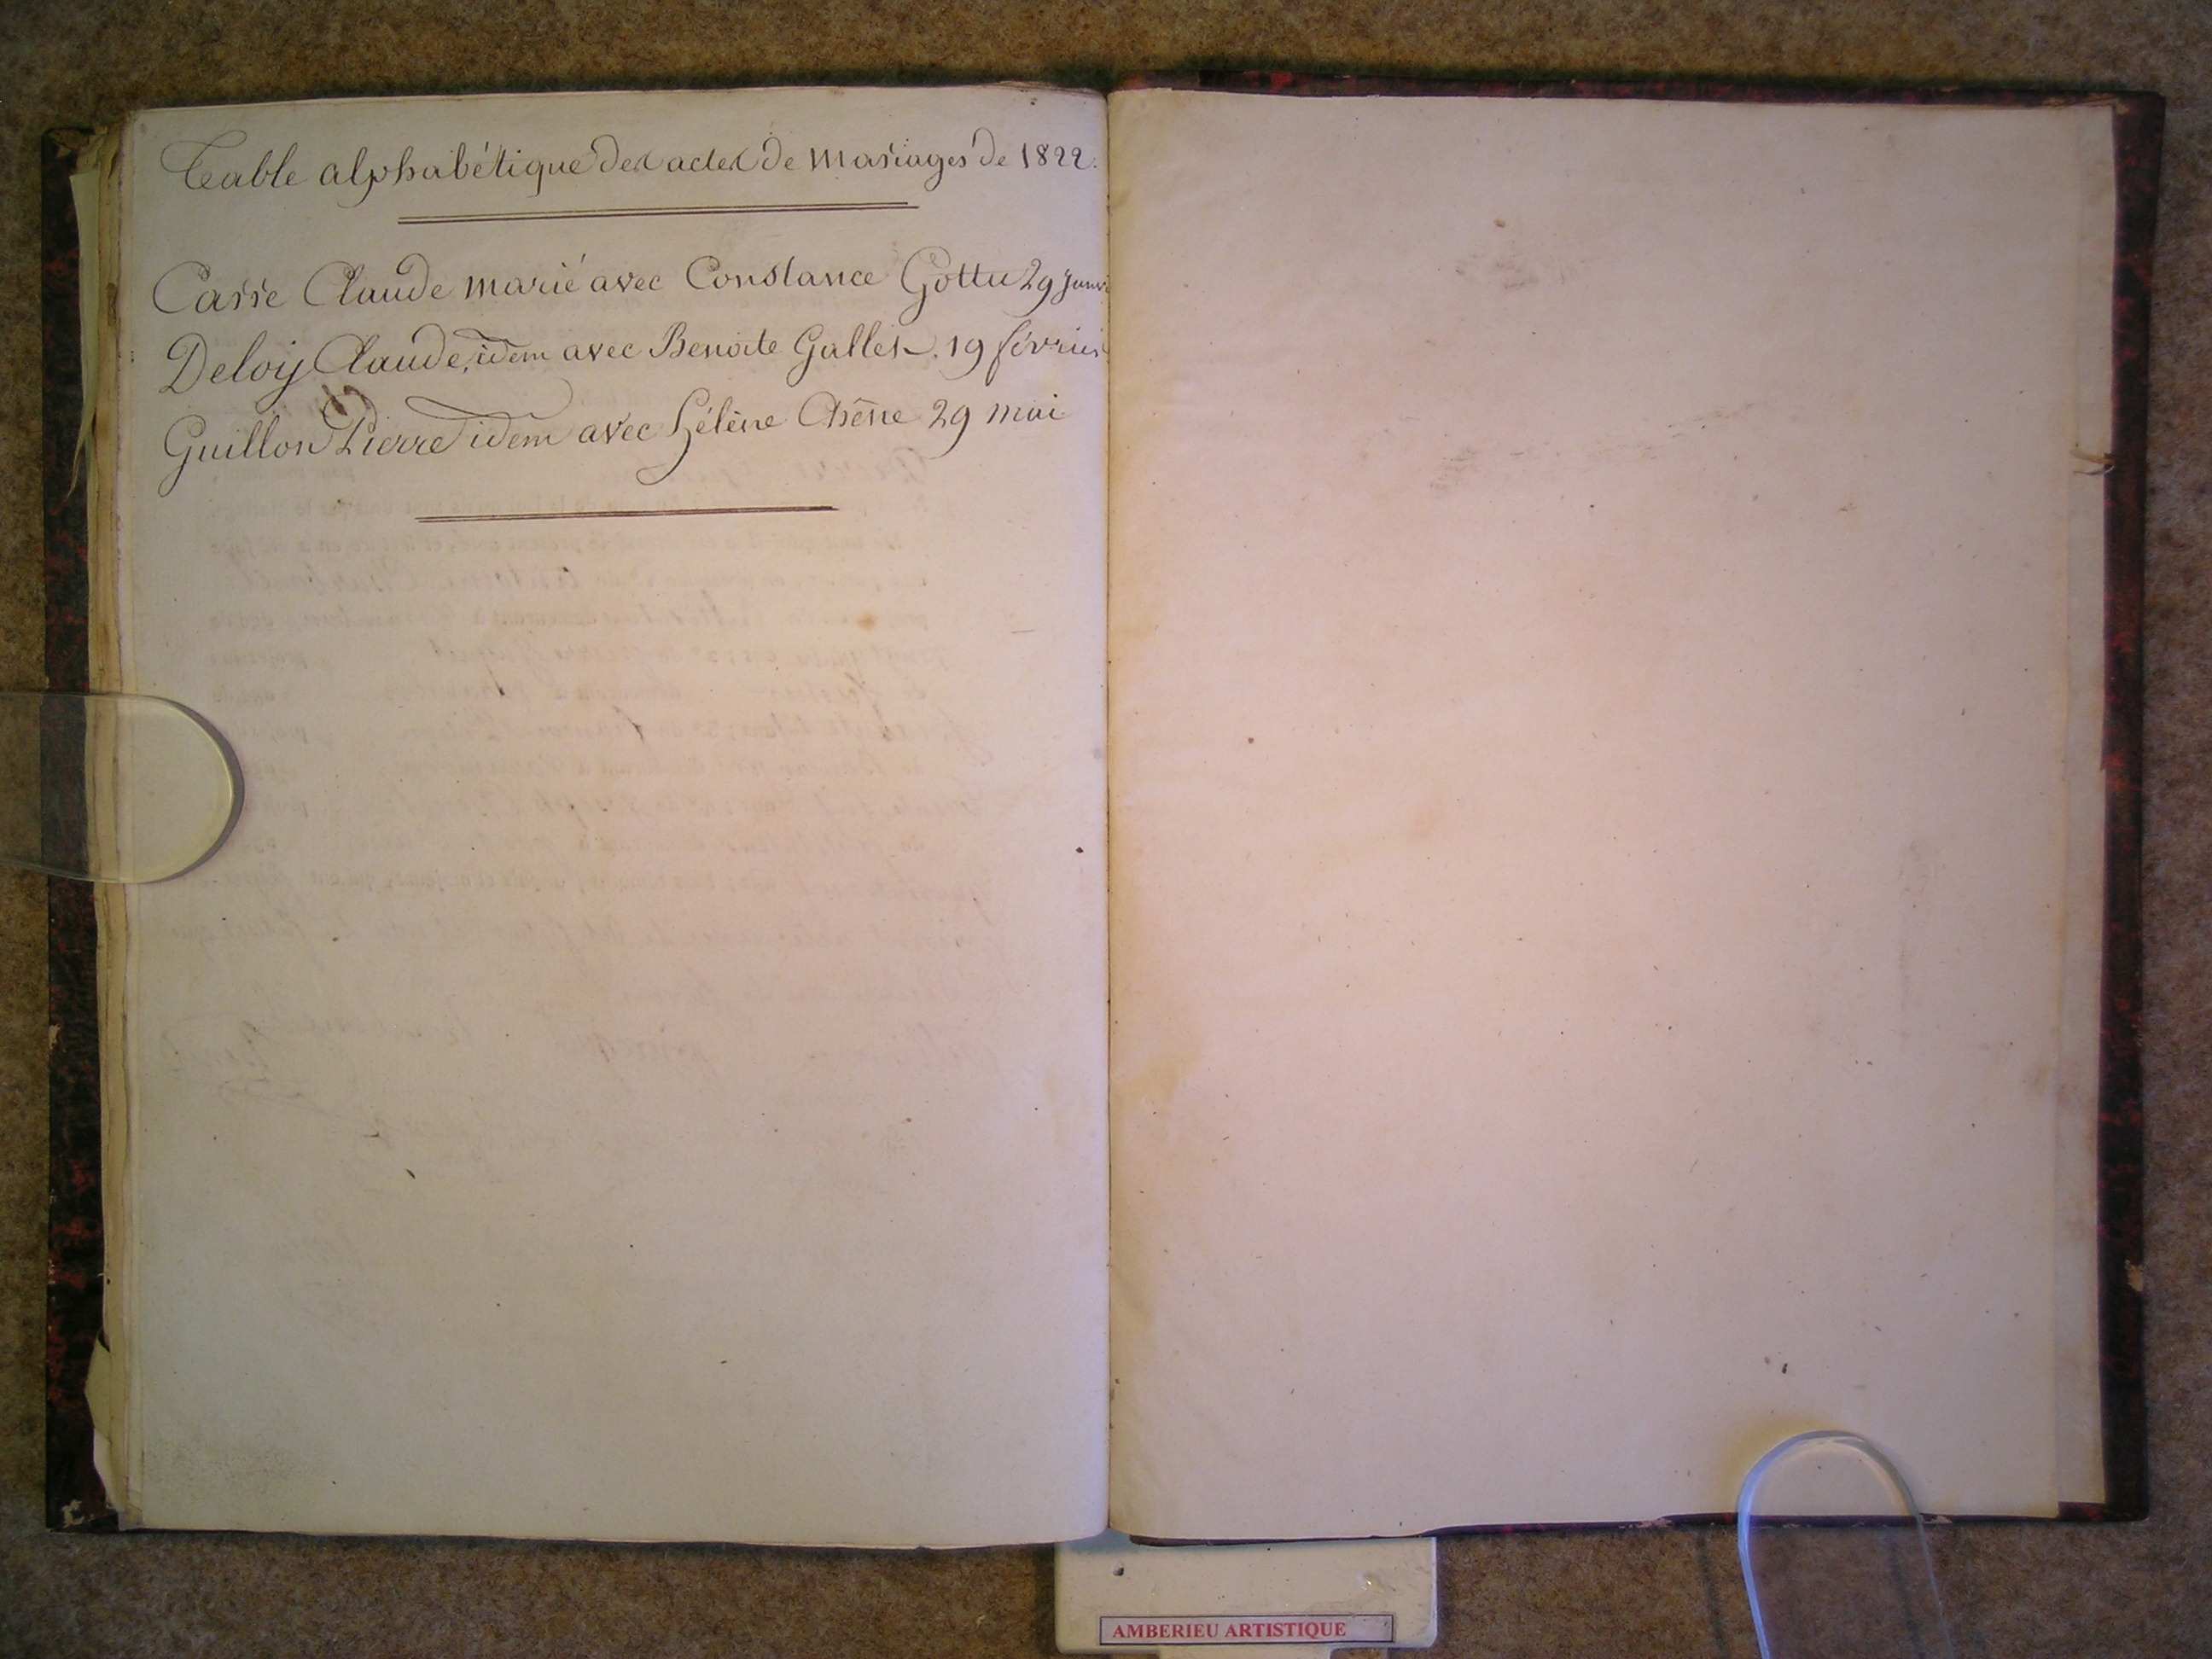 Table alphabétique des actes de Mariages de 1822.
Casse Claude marié avec Constance Gottu 29 janv
Deloy Claude, idem avec Benoite Gallet. 19 février
Guillon Pierre idem avec Hélène Chêne 29 mai
AMBERIEU ARTISTIQUE